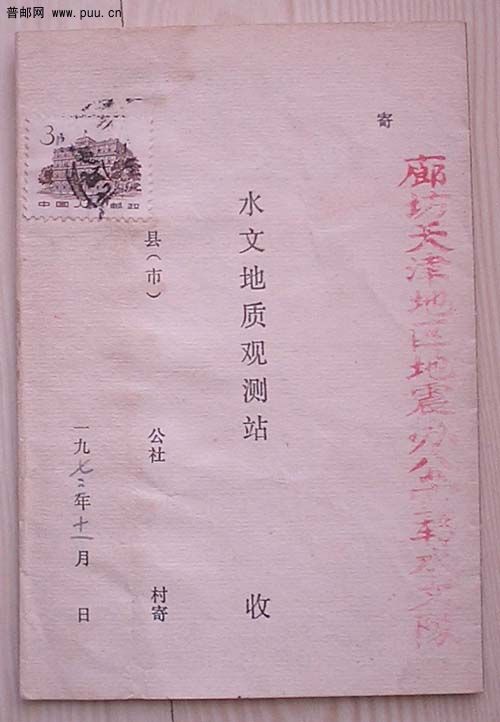 普邮网 www.puu.cn
寄
廊坊天津地区地震办公室转水文队
水文地质观测站 收
县(市) 公社 村寄
3分
中国人民邮政
一九七二年十一月 日